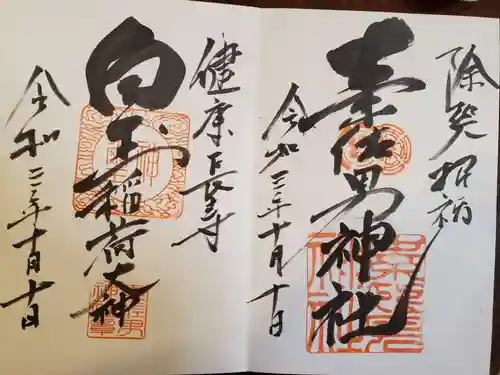 除災招福
素佐男神社
令和三年十月十日
健康長寿
白玉稲荷大神
令和三年十月十日